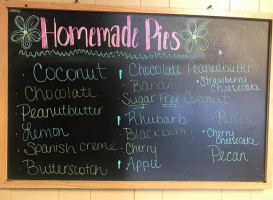 Homemade Pies
Coconut
Chocolate
Peanutbutter
Lemon
Spanish creme
Butterscotch
Chocolate Peanutbutter
Banana
Sugar Free Coconut
Rhubarb
Blackburn
Cherry
Apple
Strawberry
Cheesecake
Peach
Cherry
Cheesecake
Pecan